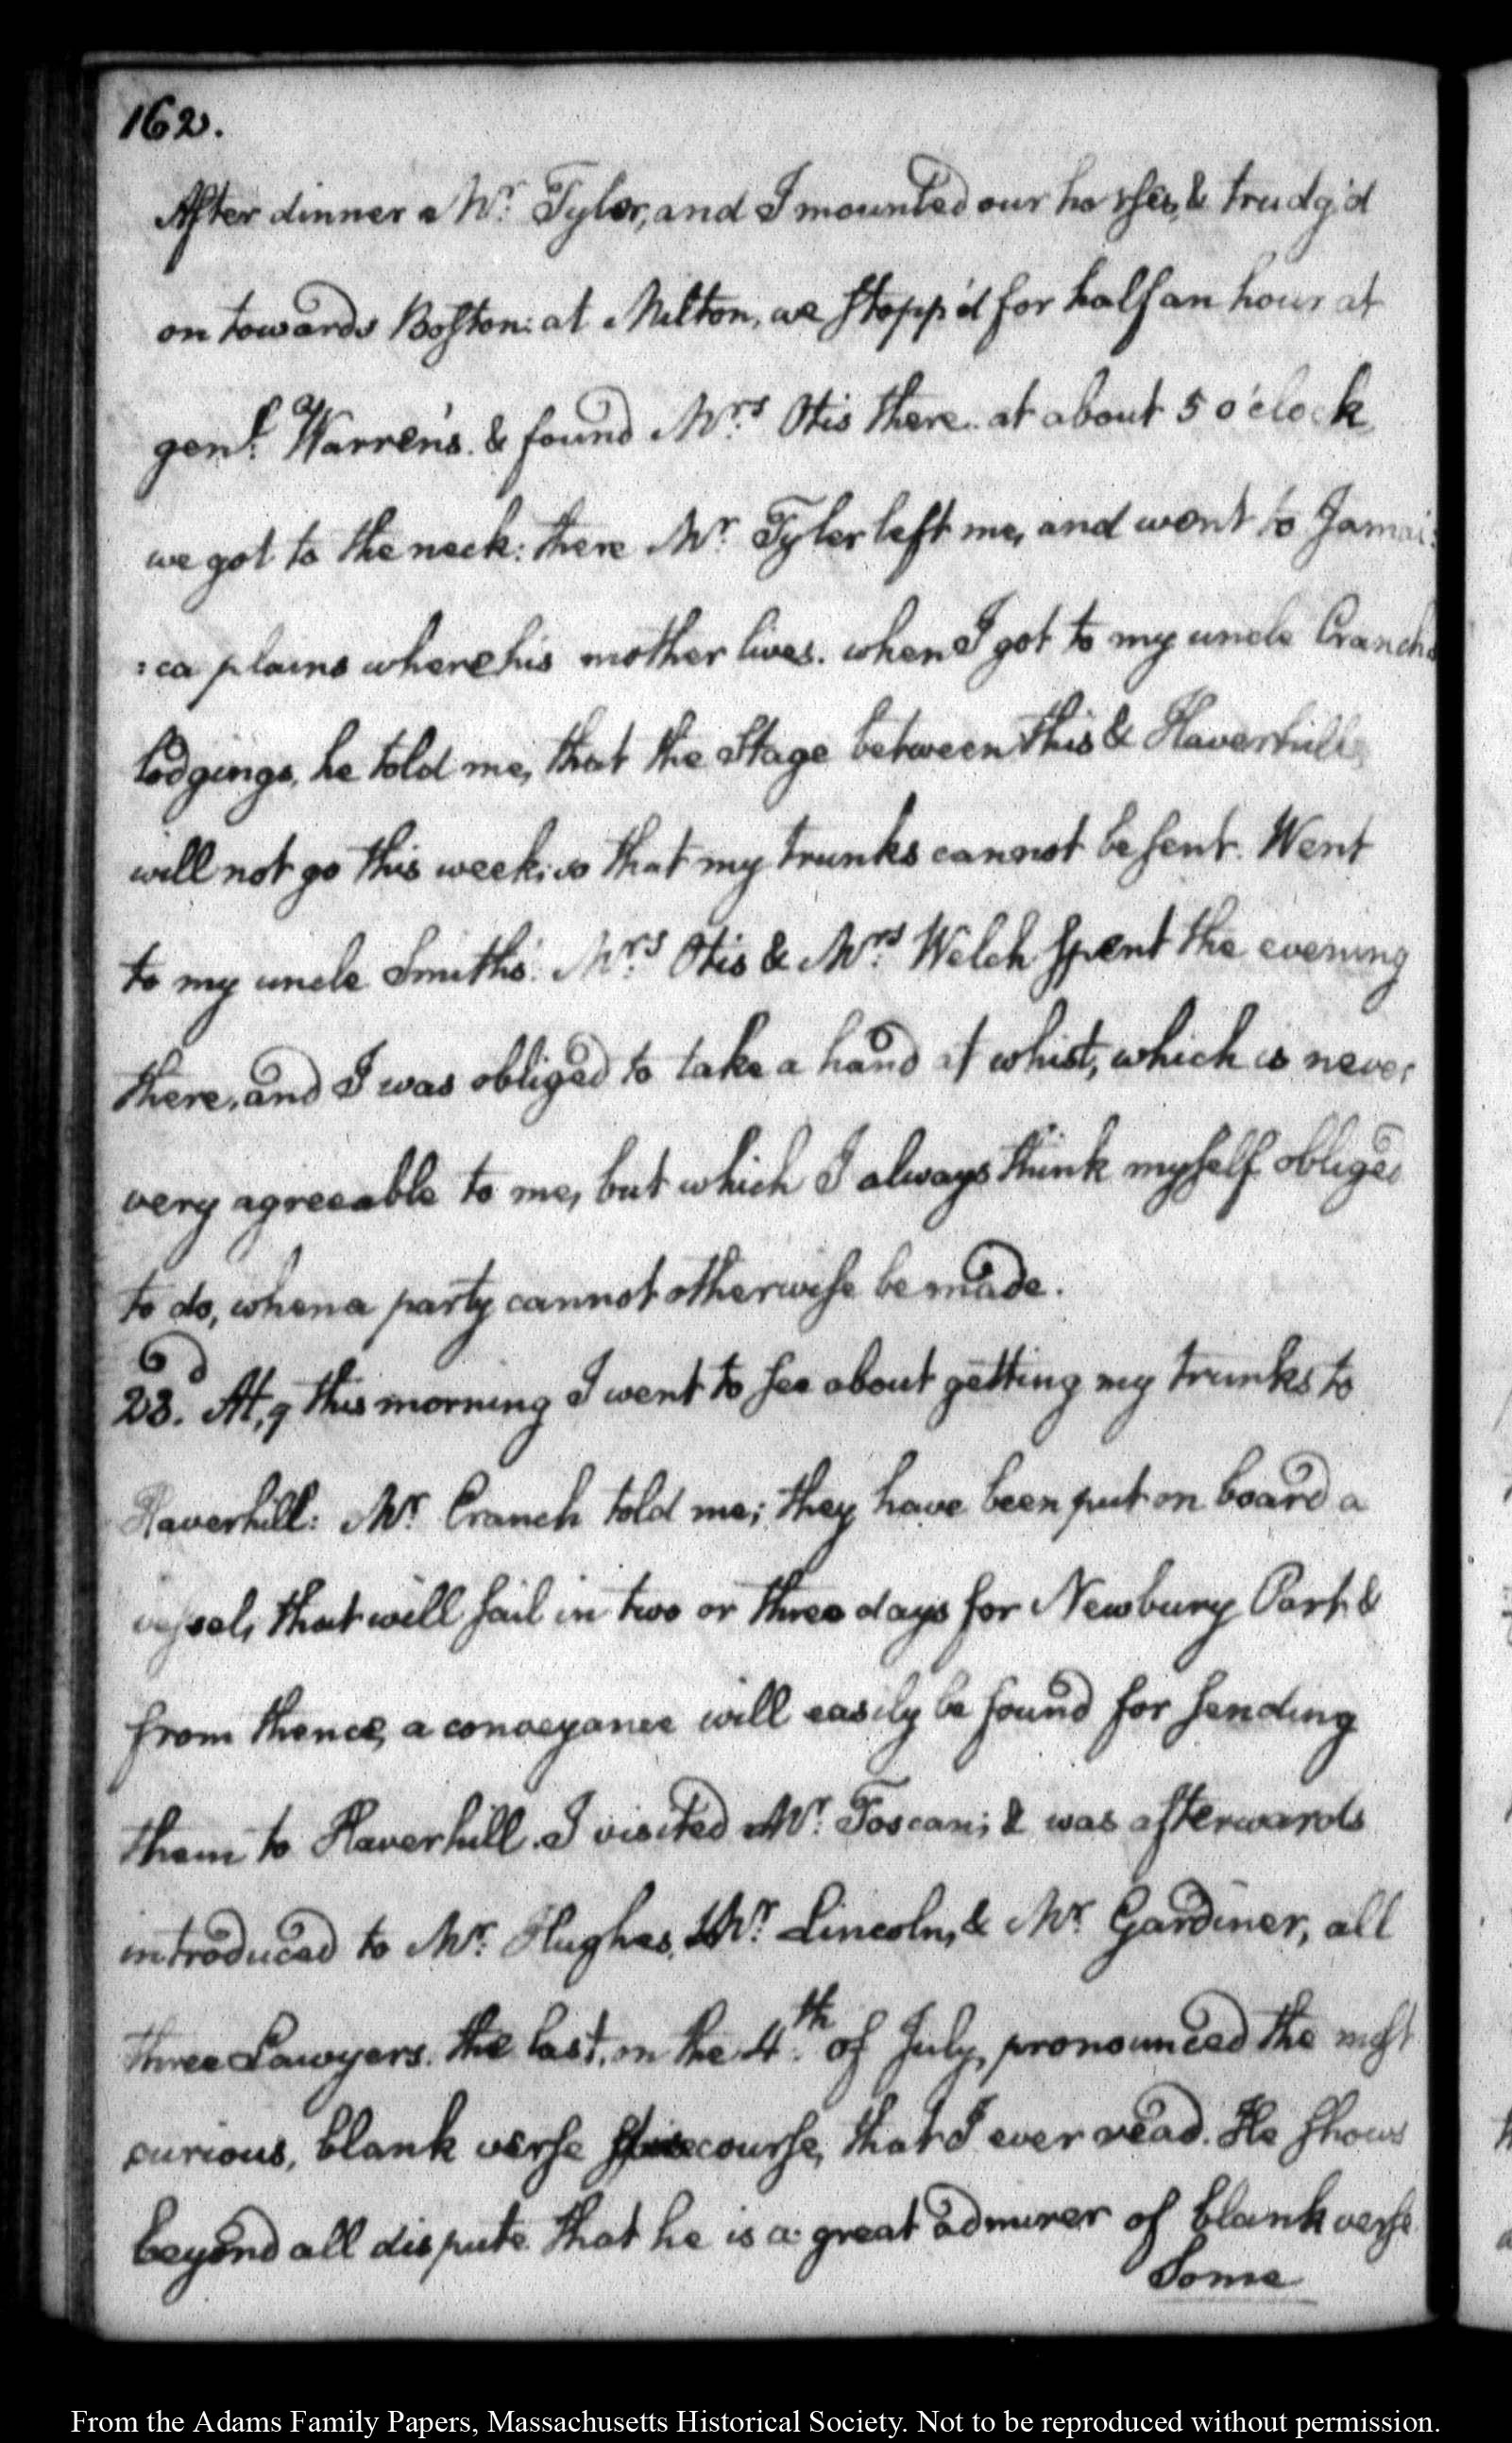 162.
After dinner Mr. Tyler, and I mounted our horses, & trudg'd
on towards Boston: at Milton, we stopp'd for half an hour at
genl. Warren's. & found Mrs. Otis there. at about 5 o'clock
we got to the neck: there Mr. Tyler left me, and went to Jamai:
:ca plains where his mother lives. when I got to my uncle Cranch's
lodgings, he told me, that the Stage between this & Haverhill
will not go this week: so that my trunks cannot be sent. Went
to my uncle Smith's. Mrs. Otis & Mrs. Welch spent the evening
there, and I was obliged to take a hand at whist, which is never
very agreeable to me, but which I always think myself obliged
to do, when a party cannot otherwise be made.
23.d At, 9 this morning I went to see about getting my trunks to
Haverhill: Mr. Cranch told me; they have been put on board a
vessel, that will sail in two or three days for Newbury Port &
from thence, a conveyance will easily be found for sending
them to Haverhill. I visited Mr. Toscan; & was afterwards
introduced to Mr. Hughes, Mr. Lincoln, & Mr. Gardiner, all
three Lawyers. the last, on the 4th. of July, pronounced the most
curious, blank verse discourse, that I ever read. He shows
beyond all dispute that he is a great admirer of blank verse
Some
From the Adams Family Papers, Massachusetts Historical Society. Not to be reproduced without permission.